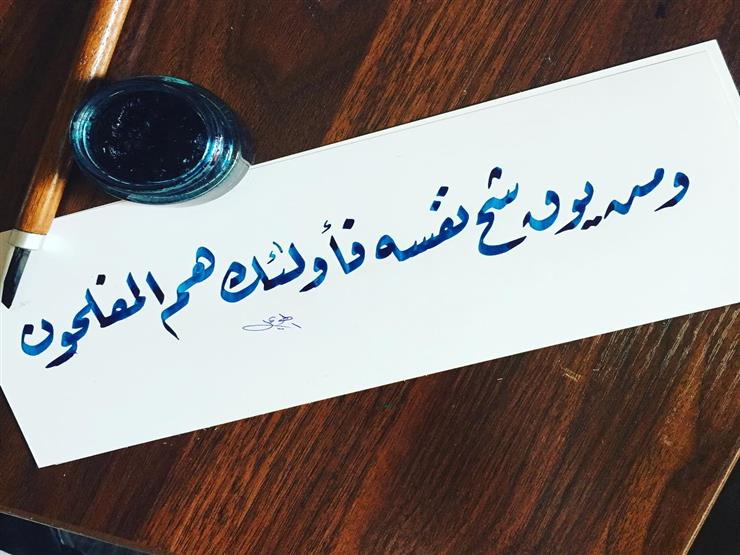 ومن يوق شح نفسه فأولئك هم المفلحون